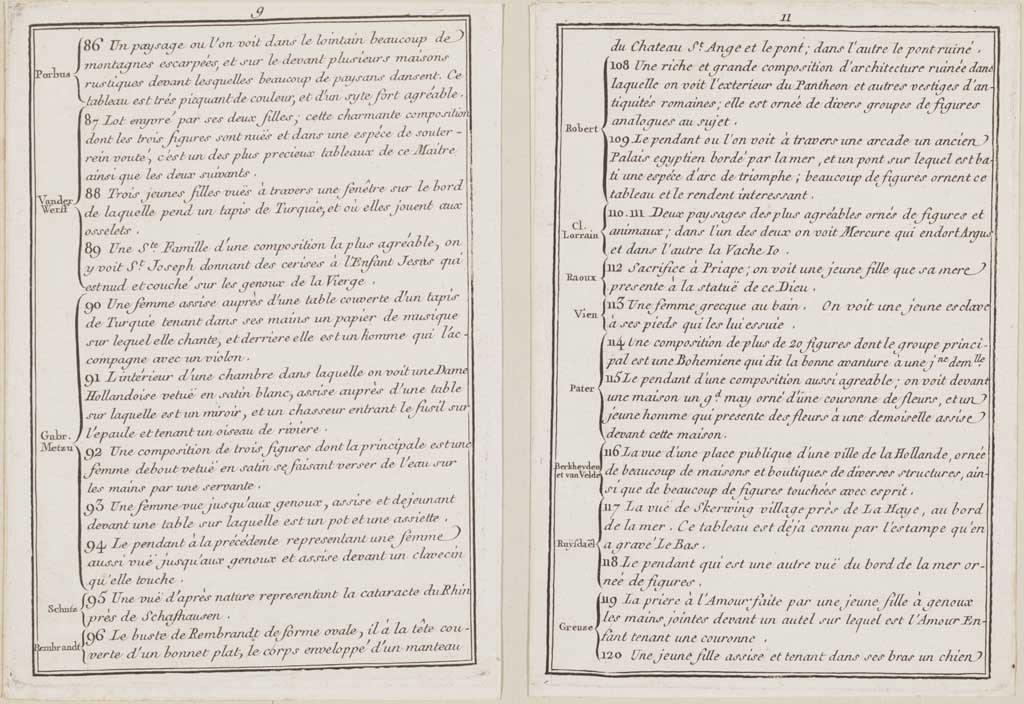 9
Porbus
86 Un paysage ou l'on voit dans le lointain beaucoup de
montagnes escarpées, et sur le devant plusieurs maisons
rustiques devant lesquelles beaucoup de paysans dansent. Ce
tableau est trés piquant de couleur, et d'un syte fort agréable.
Vander Werff
87 Lot enyvré par ses deux filles; cette charmante composition
dont les trois figures sont nuës et dans une espéce de souter-
rein vouté, c'est un des plus precieux tableaux de ce Maitre
ainsi que les deux suivants.
88 Trois jeunes filles vuës à travers une fenêtre sur le bord
de laquelle pend un tapis de Turquie, et où elles jouent aux
osselets.
89 Une Ste Famille d'une composition la plus agréable, on
y voit St Joseph donnant des cerises à l'Enfant Jesus qui
est nud et couché sur les genoux de la Vierge.
Gabr. Metzu
90 Une femme assise auprès d'une table couverte d'un tapis
de Turquie tenant dans ses mains un papier de musique
sur lequel elle chante, et derriere elle est un homme qui l'ac-
compagne avec un violon.
91 L'intérieur d'une chambre dans laquelle on voit une Dame
Hollandoise vetuë en satin blanc, assise auprès d'une table
sur laquelle est un miroir, et un chasseur entrant le fusil sur
l'epaule et tenant un oiseau de riviere.
92 Une composition de trois figures dont la principale est une
femme debout vetuë en satin se faisant verser de l'eau sur
les mains par une servante.
93 Une femme vue jusqu'aux genoux, assise et dejeunant
devant une table sur laquelle est un pot et une assiette.
94 Le pendant à la précédente representant une femme
aussi vuë jusqu'aux genoux et assise devant un clavecin
qu'elle touche.
Schutz
95 Une vuë d'après nature representant la cataracte du Rhin
près de Schafhausen.
Rembrandt
96 Le buste de Rembrandt de forme ovale, il á la tête cou-
verte d'un bonnet plat, le corps enveloppé d'un manteau
11
du Chateau St Ange et le pont; dans l'autre le pont ruiné.
Robert
108 Une riche et grande composition d'architecture ruinée dans
laquelle on voit l'exterieur du Pantheon et autres vestiges d'an-
tiquités romaines; elle est ornée de divers groupes de figures
analogues au sujet.
109 Le pendant ou l'on voit à travers une arcade un ancien
Palais egyptien bordé par la mer, et un pont sur lequel est ba-
ti une espéce d'arc de triomphe; beaucoup de figures ornent ce
tableau et le rendent interessant.
Cl. Lorrain
110.111 Deux paysages des plus agréables ornés de figures et
animaux; dans l'un des deux on voit Mercure qui endort Argus
et dans l'autre la Vache Io.
Raoux
112 Sacrifice à Priape; on voit une jeune fille que sa mere
presente à la statuë de ce Dieu.
Vien
113 Une femme grecque au bain. On voit une jeune esclave
à ses pieds qui les lui essuie.
Pater
114 Une composition de plus de 20 figures dont le groupe princi-
pal est une Bohemiene qui dit la bonne avanture à une jne demlle
115 Le pendant d'une composition aussi agreable; on voit devant
une maison un gd may orné d'une couronne de fleurs, et un
jeune homme qui presente des fleurs à une demoiselle assise
devant cette maison.
Berkheyden et van Velde
116 La vue d'une place publique d'une ville de la Hollande, ornée
de beaucoup de maisons et boutiques de diverses structures, ain-
si que de beaucoup de figures touchées avec esprit.
Ruysdaël
117 La vuë de Skerwing village près de La Haye, au bord
de la mer. Ce tableau est déja connu par l'estampe qu'en
a gravé Le Bas.
118 Le pendant qui est une autre vuë du bord de la mer or-
neé de figures.
Greuze
119 La priere à l'Amour faite par une jeune fille à genoux
les mains jointes devant un autel sur lequel est l'Amour En-
fant tenant une couronne.
120 Une jeune fille assise et tenant dans ses bras un chien